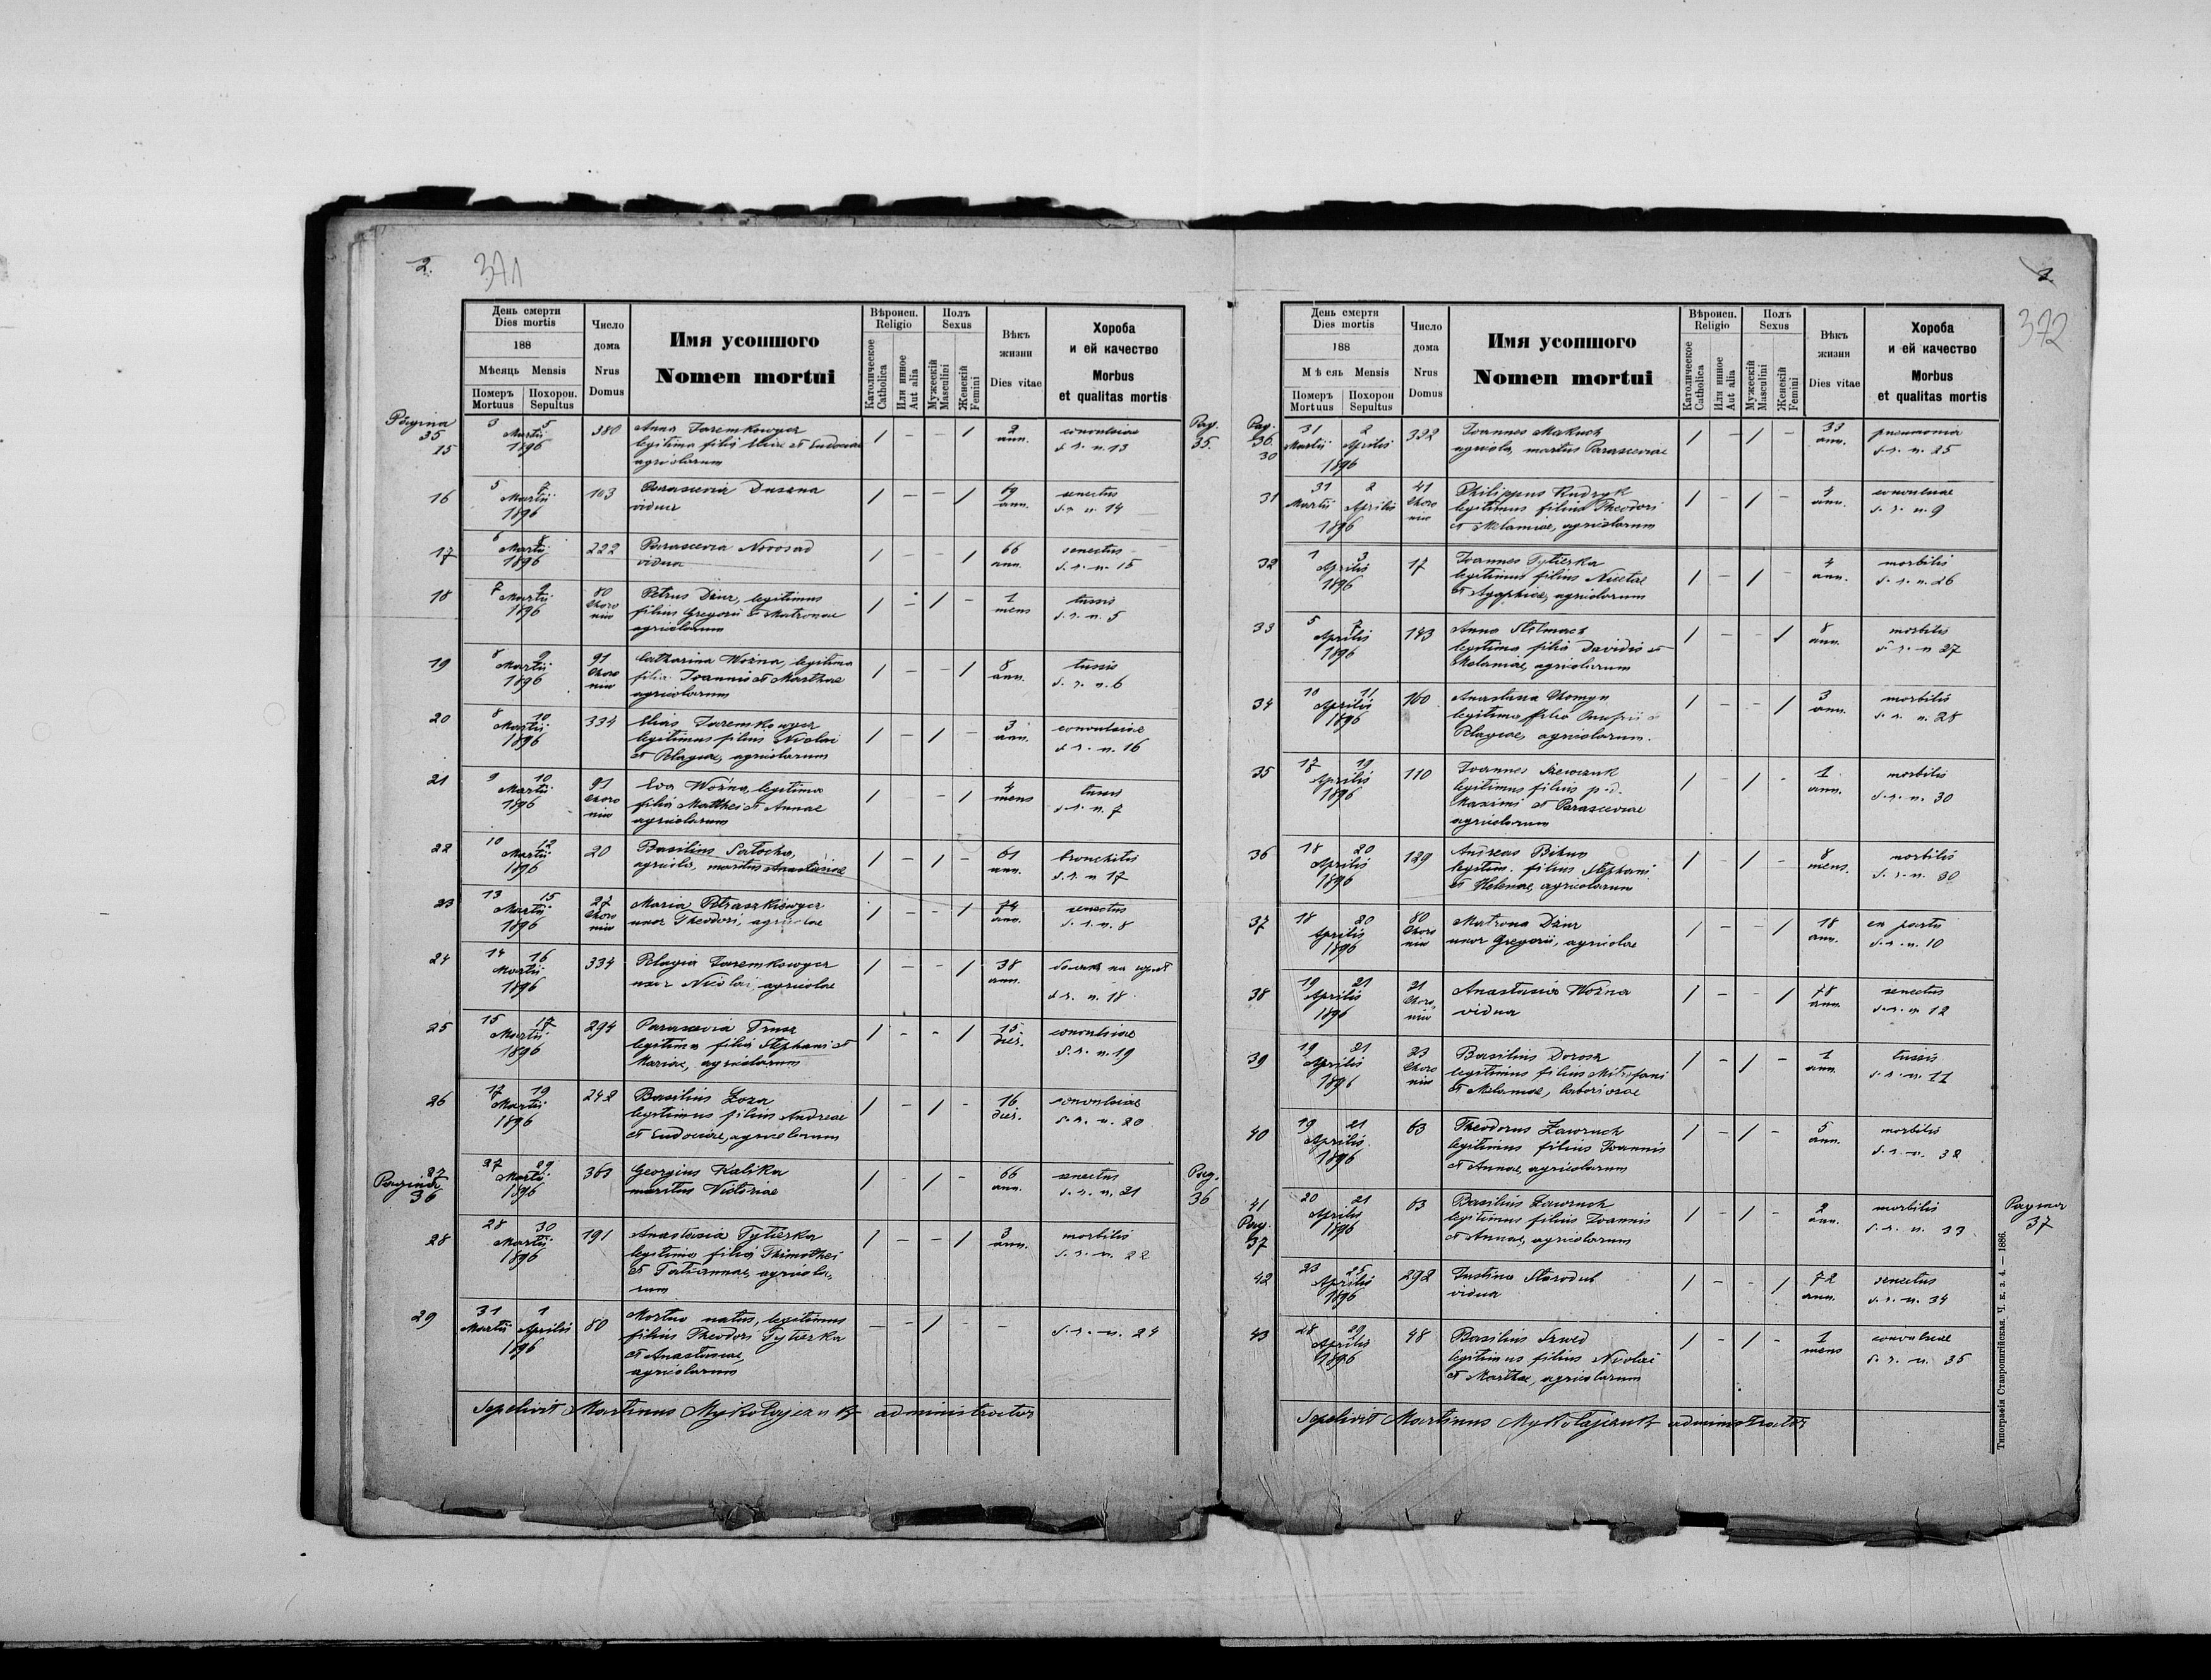 2.
371
День смерти
Dies mortis
188
Мѣсяць Mensis
Померъ Mortuus
Похорон. Sepultus
Число дома
Nrus Domus
Имя усопшого
Nomen mortui
Вѣроисп.
Religio
Католическое Catholica
Или инное Aut alia
Полъ
Sexus
Мужескій Masculini
Женскій Femini
Вѣкъ жизни
Dies vitae
Хороба
и ей качество
Morbus
et qualitas mortis
Pagina 35
15 3 5 Martii 1896 380 Anna Jaremkowycz / - - / 2 ann. convulsiae
legitima filia Eliae et Eudociae s. r. n. 13
agricolarum
16 5 7 Martii 1896 103 Parascevia / - - / 69 ann. senectus
vidua s. r. n. 14
17 6 8 Martii 1896 222 Parascevia Novosad / - - / 66 ann. senectus
vidua s. r. n. 15
18 7 9 Martii 1896 80 Choro niw Petrus Dziur, legitimus / - / - 1 mens tussis
filius Gregorii et Matronae s. r. n. 5
agricolarum
19 8 9 Martii 1896 91 Choro niw Catharina Woźna, legitima / - - / 8 ann. tussis
filia Joannis et Marthae s. r. n. 6
agricolarum
20 8 10 Martii 1896 334 Elias Jaremkowycz / - / - 3 ann. convulsiae
legitimus filius Nicolai s. r. n. 16
et Pelagiae, agricolarum
21 9 10 Martii 1896 91 Choro niw Eva Woźna, legitima / - / 4 mens tussis
filia Matthei et Annae s. r. n. 7
agricolarum
22 10 12 Martii 1896 20 Basilius / - / - 61 ann. bronchitis
agricola, maritus Anastasiae s. r. n 17
23 13 15 Martii 1896 27 Choro niw Maria Petraszkiewycz / - - / 74 ann. senectus
uxor Theodori, agricolae s. r. n. 8
24 14 16 Martii 1896 334 Pelagia Jaremkowycz / - - / 38 ann.
uxor Nicolai, agricolae s. r. n. 18
25 15 17 Martii 1896 294 Parascevia Trusz / - - / 15 dies. convulsiae
legitima filia Stephani et s. r. n. 19
Mariae, agricolarum
26 17 19 Martii 1896 242 Basilius Łoza / - / - 16 dies. convulsiae
legitimus filius Andreae s. r. n. 20
et Eudociae, agricolarum
27 Pagina 36 27 29 Martii 1896 361 Georgius Kalika / - / - 66 ann. senectus
maritus Victoriae s. r. n. 21
28 28 30 Martii 1896 191 Anastasia Tytierka / - - / 3 ann. morbilis
legitima filia Thimothei s. r. n. 22
et Tatiannae, agricola-
rum
29 31 Martii 1 Aprilis 1896 80 Mortuo natus, legitimus - - / - - s. r. n. 24
filius Theodori Tytierka
et Anastasiae,
agricolarum
Sepelivit Martinus Mykołajczuk administrator
Pag. 35.
Pag. 36
1
372
День смерти
Dies mortis
188
Мѣсяць Mensis
Померъ Mortuus
Похорон Sepultus
Число дома
Nrus Domus
Имя усопшого
Nomen mortui
Вѣроисп.
Religio
Католическое Catholica
Или инное Aut alia
Полъ
Sexus
Мужескій Masculini
Женскій Femini
Вѣкъ жизни
Dies vitae
Хороба
и ей качество
Morbus
et qualitas mortis
Pag. 36.
30 31 Martii 2 Aprilis 1896 332 Joannes Makuch / - / - 33 ann. pneumonia
agricola, maritus Parasceviae s. r. n. 25
31 31 Martii 2 Aprilis 1896 41 Choro niw Philippus Kudryk / - / - 4 ann. convulsiae
legitimus filius Theodori s. r. n. 9
et Melaniae, agricolarum
32 1 3 Aprilis 1896 17 Joannes Tytierka / - / - 4 ann. morbilis
legitimus filius Nicetae s. r. n. 26
et Agaphiae, agricolarum
33 5 7 Aprilis 1896 143 Anna Stelmach / - - / 8 ann. morbilis
legitima filia Davidis et s. r. n 27
Melaniae, agricolarum
34 10 11 Aprilis 1896 160 Anastasia Chomyn / - - / 3 ann. morbilis
legitima filia Onufrii et s. r. n. 28
Pelagiae, agricolarum.
35 17 19 Aprilis 1896 110 Joannes Szewczuk / - / - 1 ann. morbilis
legitimus filius p. d. s. r. n. 30
Maximi et Parasceviae
agricolarum
36 18 20 Aprilis 1896 129 Andreas Bihus / - / - 8 mens. morbilis
legitim. filius Stephani s. r. n. 30
et Helenae, agricolarum
37 18 20 Aprilis 1896 80 Choro niw Matrona Dziur / - - / 18 ann. ex partu
uxor Gregorii, agricolae s. r. n. 10
38 19 21 Aprilis 1896 21 Choro- niw Anastasia Woźna / - - / 78 ann. senectus
vidua s. r. n 12
39 19 21 Aprilis 1896 23 Choro niw Basilius Dorosz / - / - 1 ann. tussis
legitimus filius Mitrofani s. r. n. 11
et Melaniae, laboriosae
40 19 21 Aprilis 1896 63 Theodorus Ławruch / - / - 5 ann. morbilis
legitimus filius Joannis s. r. n. 32
et Annae, agricolarum
41 Pag. 37 20 21 Aprilis 1896 63 Basilius Ławruch / - / - 2 ann. morbilis
legitimus filius Joannis s. r. n. 33
et Annae, agricolarum
Pagina 37
42 23 25 Aprilis 1896 292 Justina Starodub / - - / 72 ann. senectus
vidua s. r. n. 34
43 28 29 Aprilis 1896 48 Basilius Szwed / - / - 1 mens convulsiae
legitimus filius Nicolai s. r. n. 35
et Marthae, agricolarum
Sepelivit Martinus Mykołajczuk administrator
Типографія Ставропигійская. Ч. к. з. 4. — 1886.